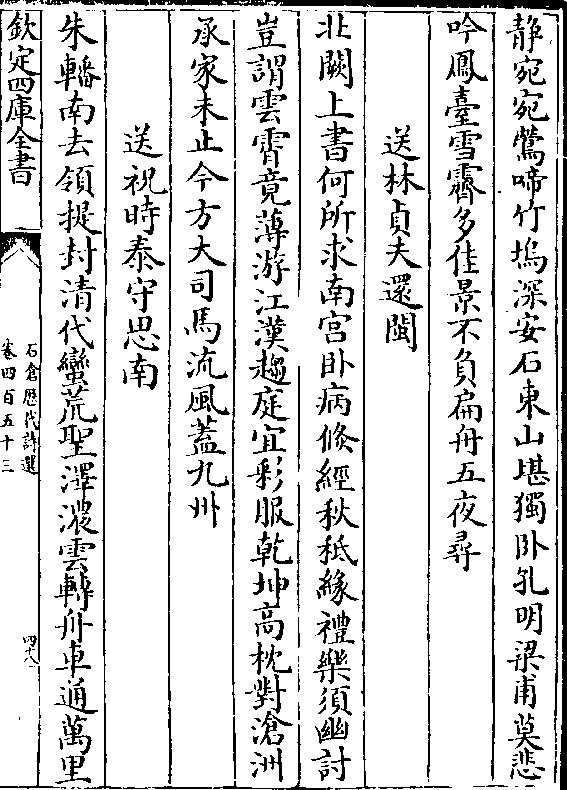 静宛宛鶯啼竹塢深安石東山堪獨卧孔明梁甫莫悲
吟鳳臺雪霽多佳景不負扁舟五夜尋
送林貞夫還閩
北闕上書何所求南宮卧病倐經秋秪緣禮樂須幽討
豈謂雲霄竟薄游江漢趨庭宜彩服乾坤高枕對滄洲
承家未止今方大司馬流風蓋九州
送祝時泰守思南
朱轓南去領提封清代蠻荒聖澤濃雲轉舟車通萬里
欽定四庫全書
石倉歴代詩選
卷四百五十三
四十八